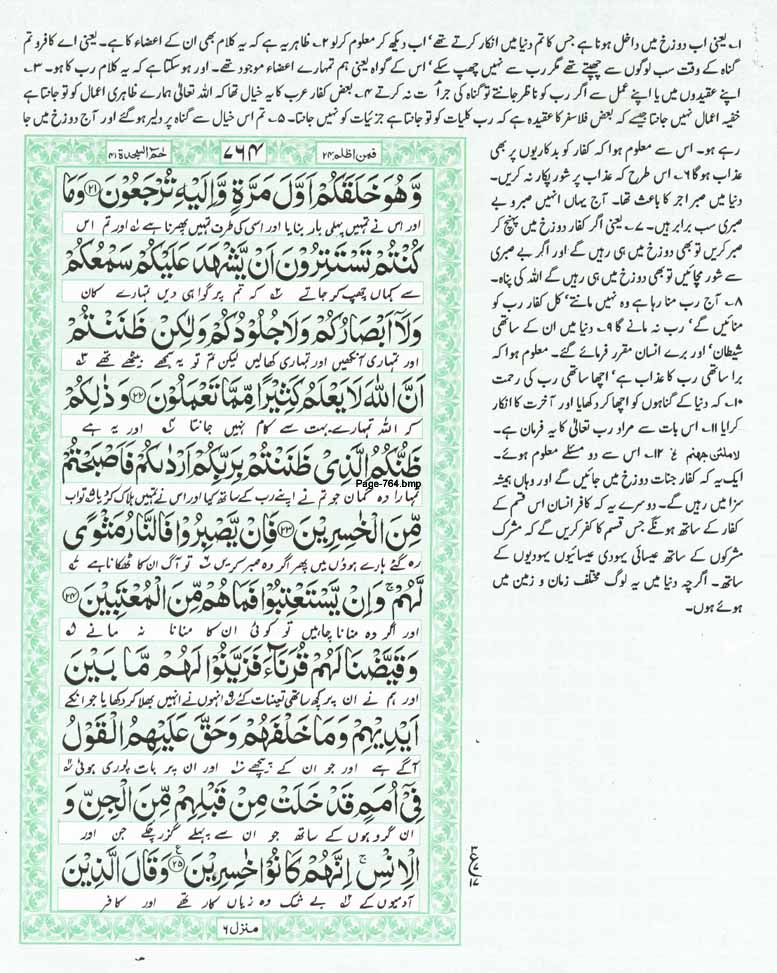 ۱۔ یعنی اب دوزخ میں داخل ہونا ہے جس کا تم دنیا میں انکار کرتے تھے‘ اب دیکھ کر معلوم کرلو ۲۔ ظاہر یہ ہے کہ یہ کلام بھی ان کے اعضاء کا ہے۔ یعنی اے کافرو تم
گناہ کے وقت سب لوگوں سے چھپتے تھے مگر رب سے نہیں چھپ سکے‘ اس کے گواہ یعنی ہم تمہارے اعضاء موجود تھے۔ اور ہو سکتا ہے کہ یہ کلام رب کا ہو۔ ۳۔
اپنے عقیدوں میں یا اپنے عمل سے اگر رب کو ناظر جانتے تو گناہ کی جرأت نہ کرتے ۴۔ بعض کفار عرب کا یہ خیال تھا کہ اللہ تعالیٰ ہمارے ظاہری اعمال کو تو جانتا ہے
خفیہ اعمال نہیں جانتا جیسے کہ بعض فلاسفر کا عقیدہ ہے کہ رب کلیات کو تو جانتا ہے جزئیات کو نہیں جانتا۔ ۵۔ تم اس خیال سے گناہ پر دلیر ہو گئے اور آج دوزخ میں جا
رہے ہو۔ اس سے معلوم ہوا کہ کفار کو بدکاریوں پر بھی
عذاب ہو گا ۶۔ اس طرح کہ عذاب پر شور پکار نہ کریں۔
دنیا میں صبر اجر کا باعث تھا۔ آج یہاں انہیں صبر و بے
صبری سب برابر ہیں۔ ۷۔ یعنی اگر کفار دوزخ میں پہنچ کر
صبر کریں تو بھی دوزخ میں ہی رہیں گے اور اگر بے صبری
سے شور مچائیں تو بھی دوزخ میں ہی رہیں گے اللہ کی پناہ۔
۸۔ آج رب منا رہا ہے وہ نہیں مانتے‘ کل کفار رب کو
منائیں گے‘ رب نہ مانے گا ۹۔ دنیا میں ان کے ساتھی
شیطان‘ اور برے انسان مقرر فرمائے گئے۔ معلوم ہوا کہ
برا ساتھی رب کا عذاب ہے‘ اچھا ساتھی رب کی رحمت
۱۰۔ کہ دنیا کے گناہوں کو اچھا کر دکھایا اور آخرت کا انکار
کرایا ۱۱۔ اس بات سے مراد رب تعالیٰ کا یہ فرمان ہے۔
لاملئن جهنم ۱۲۔ اس سے دو مسئلے معلوم ہوئے۔
ایک یہ کہ کفار جنات دوزخ میں جائیں گے اور وہاں ہمیشہ
سزا میں رہیں گے۔ دوسرے یہ کہ کافر انسان اس قسم کے
کفار کے ساتھ ہونگے جس قسم کا کفر کریں گے کہ مشرک
مشرکوں کے ساتھ عیسائی یہودی عیسائیوں یہودیوں کے
ساتھ۔ اگرچہ دنیا میں یہ لوگ مختلف زمان و زمین میں
ہوئے ہوں۔
فمن اظلم ۲۴ ۷۶۴ حٰمٓ السجدة ۴۱
وَّهُوَ خَلَقَكُمْ اَوَّلَ مَرَّةٍ وَّاِلَيْهِ تُرْجَعُوْنَ ﴿۲۱﴾ وَمَا
اور اس نے تمہیں پہلی بار بنایا اور اسی کی طرف تمہیں پھرنا ہے اور تم اس
كُنْتُمْ تَسْتَتِرُوْنَ اَنْ يَّشْهَدَ عَلَيْكُمْ سَمْعُكُمْ
سے کہاں چھپ کر جاتے کہ تم پر گواہی دیں تمہارے کان
وَلَآ اَبْصَارُكُمْ وَلَا جُلُوْدُكُمْ وَلٰكِنْ ظَنَنْتُمْ
اور تمہاری آنکھیں اور تمہاری کھالیں لیکن تم تو یہ سمجھے بیٹھے تھے
اَنَّ اللّٰهَ لَا يَعْلَمُ كَثِيْرًا مِّمَّا تَعْمَلُوْنَ ﴿۲۲﴾ وَذٰلِكُمْ
کہ اللہ تمہارے بہت سے کام نہیں جانتا اور یہ ہے
ظَنُّكُمُ الَّذِيْ ظَنَنْتُمْ بِرَبِّكُمْ اَرْدٰىكُمْ فَاَصْبَحْتُمْ
Page-764.bmp
تمہارا وہ گمان جو تم نے اپنے رب کے ساتھ کیا اور اس نے تمہیں ہلاک کر دیا تو اب
مِّنَ الْخٰسِرِيْنَ ﴿۲۳﴾ فَاِنْ يَّصْبِرُوْا فَالنَّارُ مَثْوًى
رہ گئے ہارے ہوؤں میں پھر اگر وہ صبر کریں تو آگ ان کا ٹھکانا ہے
لَّهُمْ ۚ وَاِنْ يَّسْتَعْتِبُوْا فَمَا هُمْ مِّنَ الْمُعْتَبِيْنَ ﴿۲۴﴾
اور اگر وہ منانا چاہیں تو کوئی ان کا منانا نہ مانے
وَقَيَّضْنَا لَهُمْ قُرَنَآءَ فَزَيَّنُوْا لَهُمْ مَّا بَيْنَ
اور ہم نے ان پر کچھ ساتھی تعینات کئے انہوں نے انہیں بھلا کر دکھایا جو انکے
اَيْدِيْهِمْ وَمَا خَلْفَهُمْ وَحَقَّ عَلَيْهِمُ الْقَوْلُ
آگے ہے اور جو ان کے پیچھے اور ان پر بات پوری ہوئی
فِيْٓ اُمَمٍ قَدْ خَلَتْ مِنْ قَبْلِهِمْ مِّنَ الْجِنِّ وَ
ان گروہوں کے ساتھ جو ان سے پہلے گزر چکے جن اور
الْاِنْسِ ۚ اِنَّهُمْ كَانُوْا خٰسِرِيْنَ ﴿۲۵﴾ وَقَالَ الَّذِيْنَ
آدمیوں کے بے شک وہ زیاں کار تھے اور کافر
منزل ۶